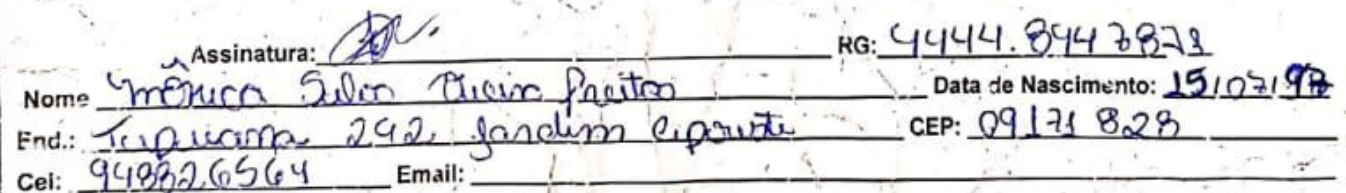 Assinatura: RG: 4444.8947871
Nome Mônica Silva Vieira Freitas Data de Nascimento: 15/07/97
End.: 242, Jardim CEP: 09171 828
Cel: 948826564 Email: